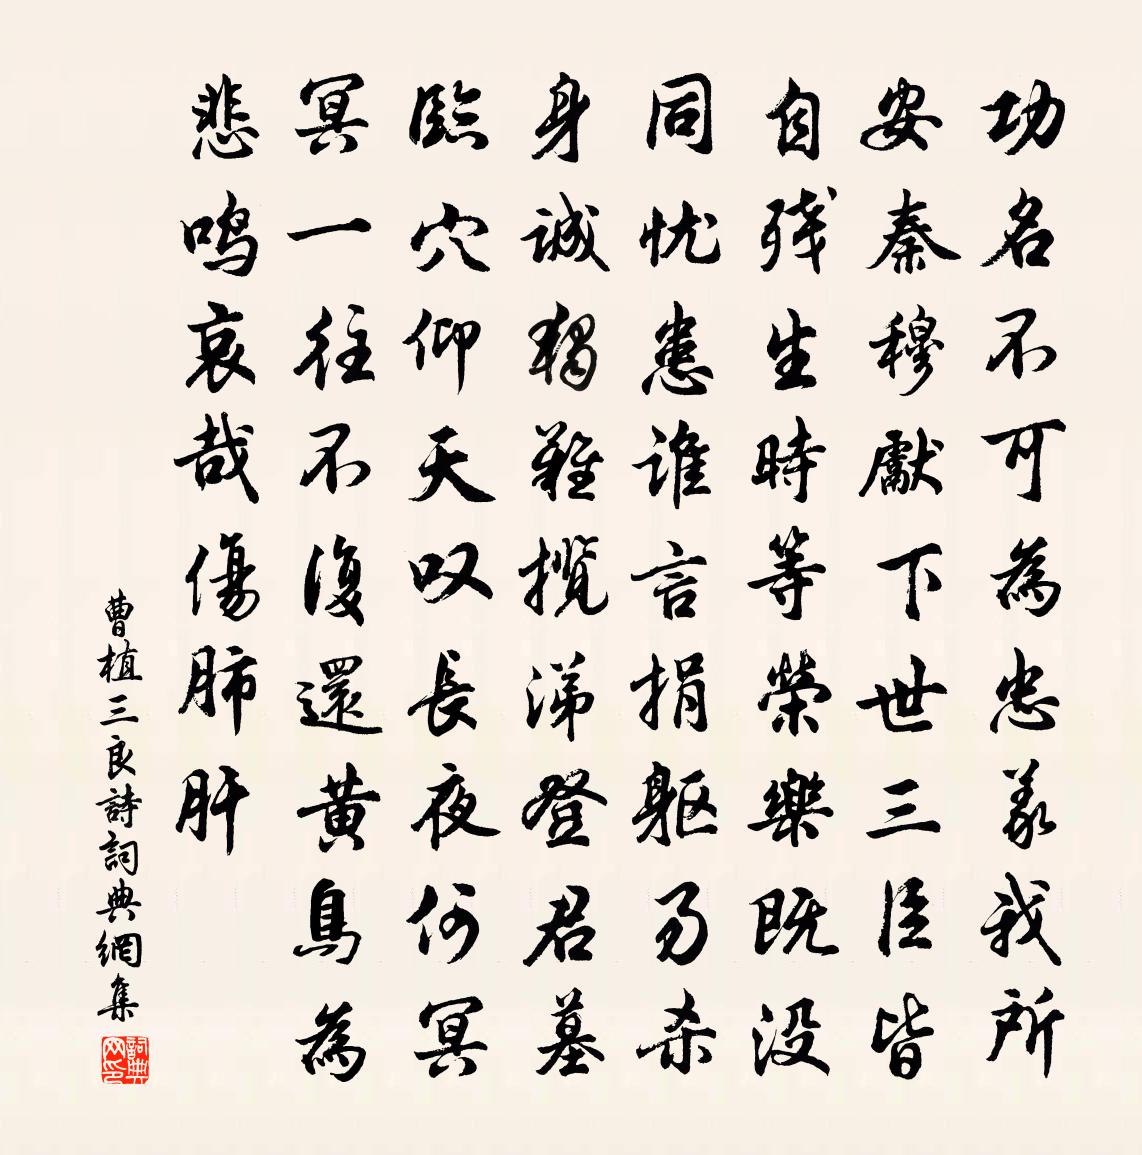 功名不可為忠義我所
安秦穆獻下世三臣皆
自残生時等榮樂既没
同忧患谁言捐躯易杀
身诚獨難揽涕登君墓
臨穴仰天叹長夜何冥
冥一往不復還黄鳥為
悲鸣哀哉傷肺肝
曹植三良詩詞典網集
詞典网印